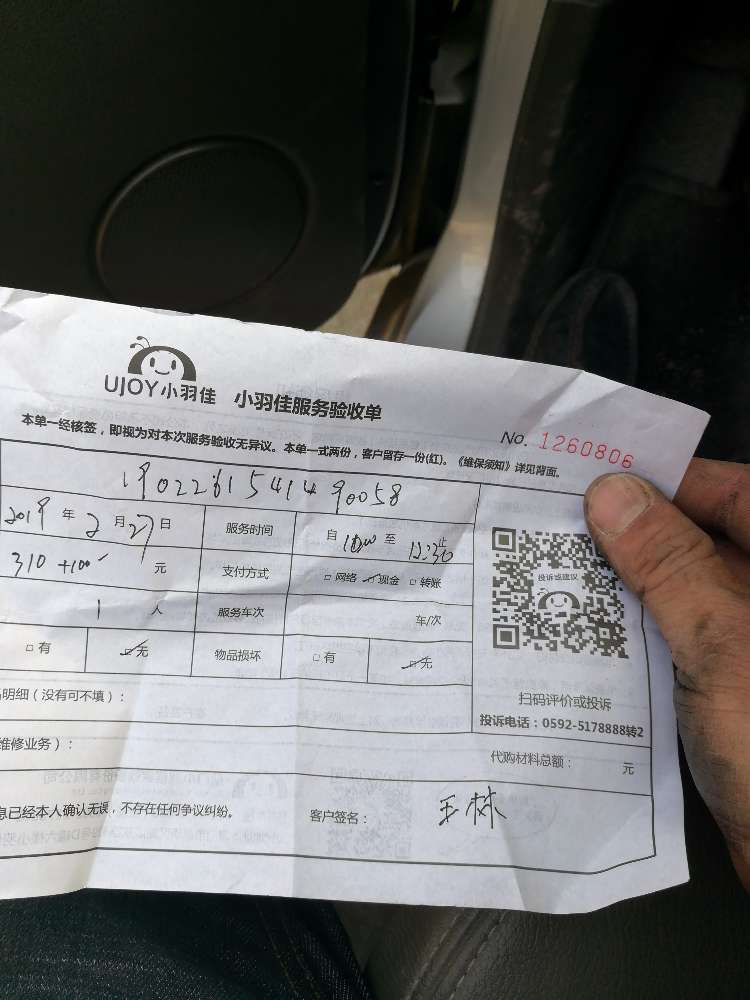 UJOY小羽佳 小羽佳服务验收单
No. 1260806
本单一经核签，即视为对本次服务验收无异议。本单一式两份，客户留存一份(红)。《维保须知》详见背面。
1902261541490058
2019 年 2 月 27 日 服务时间 自 至 12:30 止
310 +100 元 支付方式 □ 网络 ☑ 现金 □ 转账
投诉或建议
1 人 服务车次 车/次
□ 有 ☑ 无 物品损坏 □ 有 ☑ 无
扫码评价或投诉
投诉电话：0592-5178888转2
明细（没有可不填）：
维修业务）： 代购材料总额： 元
息已经本人确认无误，不存在任何争议纠纷。 客户签名： 王林